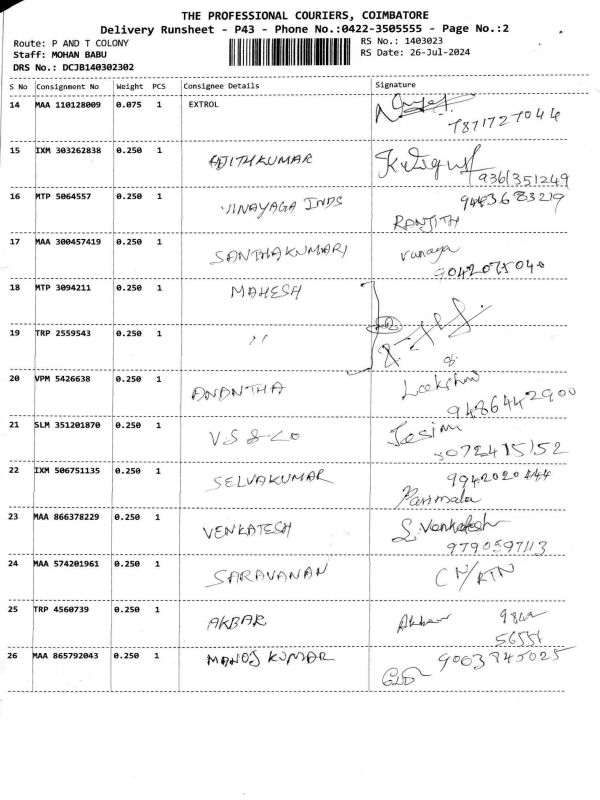 THE PROFESSIONAL COURIERS, COIMBATORE
Delivery Runsheet - P43 - Phone No.:0422-3505555 - Page No.:2
Route: P AND T COLONY
Staff: MOHAN BABU
DRS No.: DCJB140302302
RS No.: 1403023
RS Date: 26-Jul-2024
S No Consignment No Weight PCS Consignee Details Signature
14 MAA 110128009 0.075 1 EXTROL
7871727044
15 IXM 303262838 0.250 1 AJITHKUMAR
9361351249
16 MTP 5064557 0.250 1 VINAYAGA INDS 9443683219
RANJITH
17 MAA 300457419 0.250 1 SANTHAKUMARI
9042075040
18 MTP 3094211 0.250 1 MAHESH
19 TRP 2559543 0.250 1 ''
20 VPM 5426638 0.250 1 ANANTHA
9486442900
21 SLM 351201870 0.250 1 V S & CO
22 IXM 506751135 0.250 1 SELVAKUMAR 9942020444
Parimala
23 MAA 866378229 0.250 1 VENKATESH S. Venkatesh
9790597113
24 MAA 574201961 0.250 1 SARAVANAN CN/RTN
25 TRP 4560739 0.250 1 AKBAR Akbar
26 MAA 865792043 0.250 1 MANOJ KUMAR 9003845025